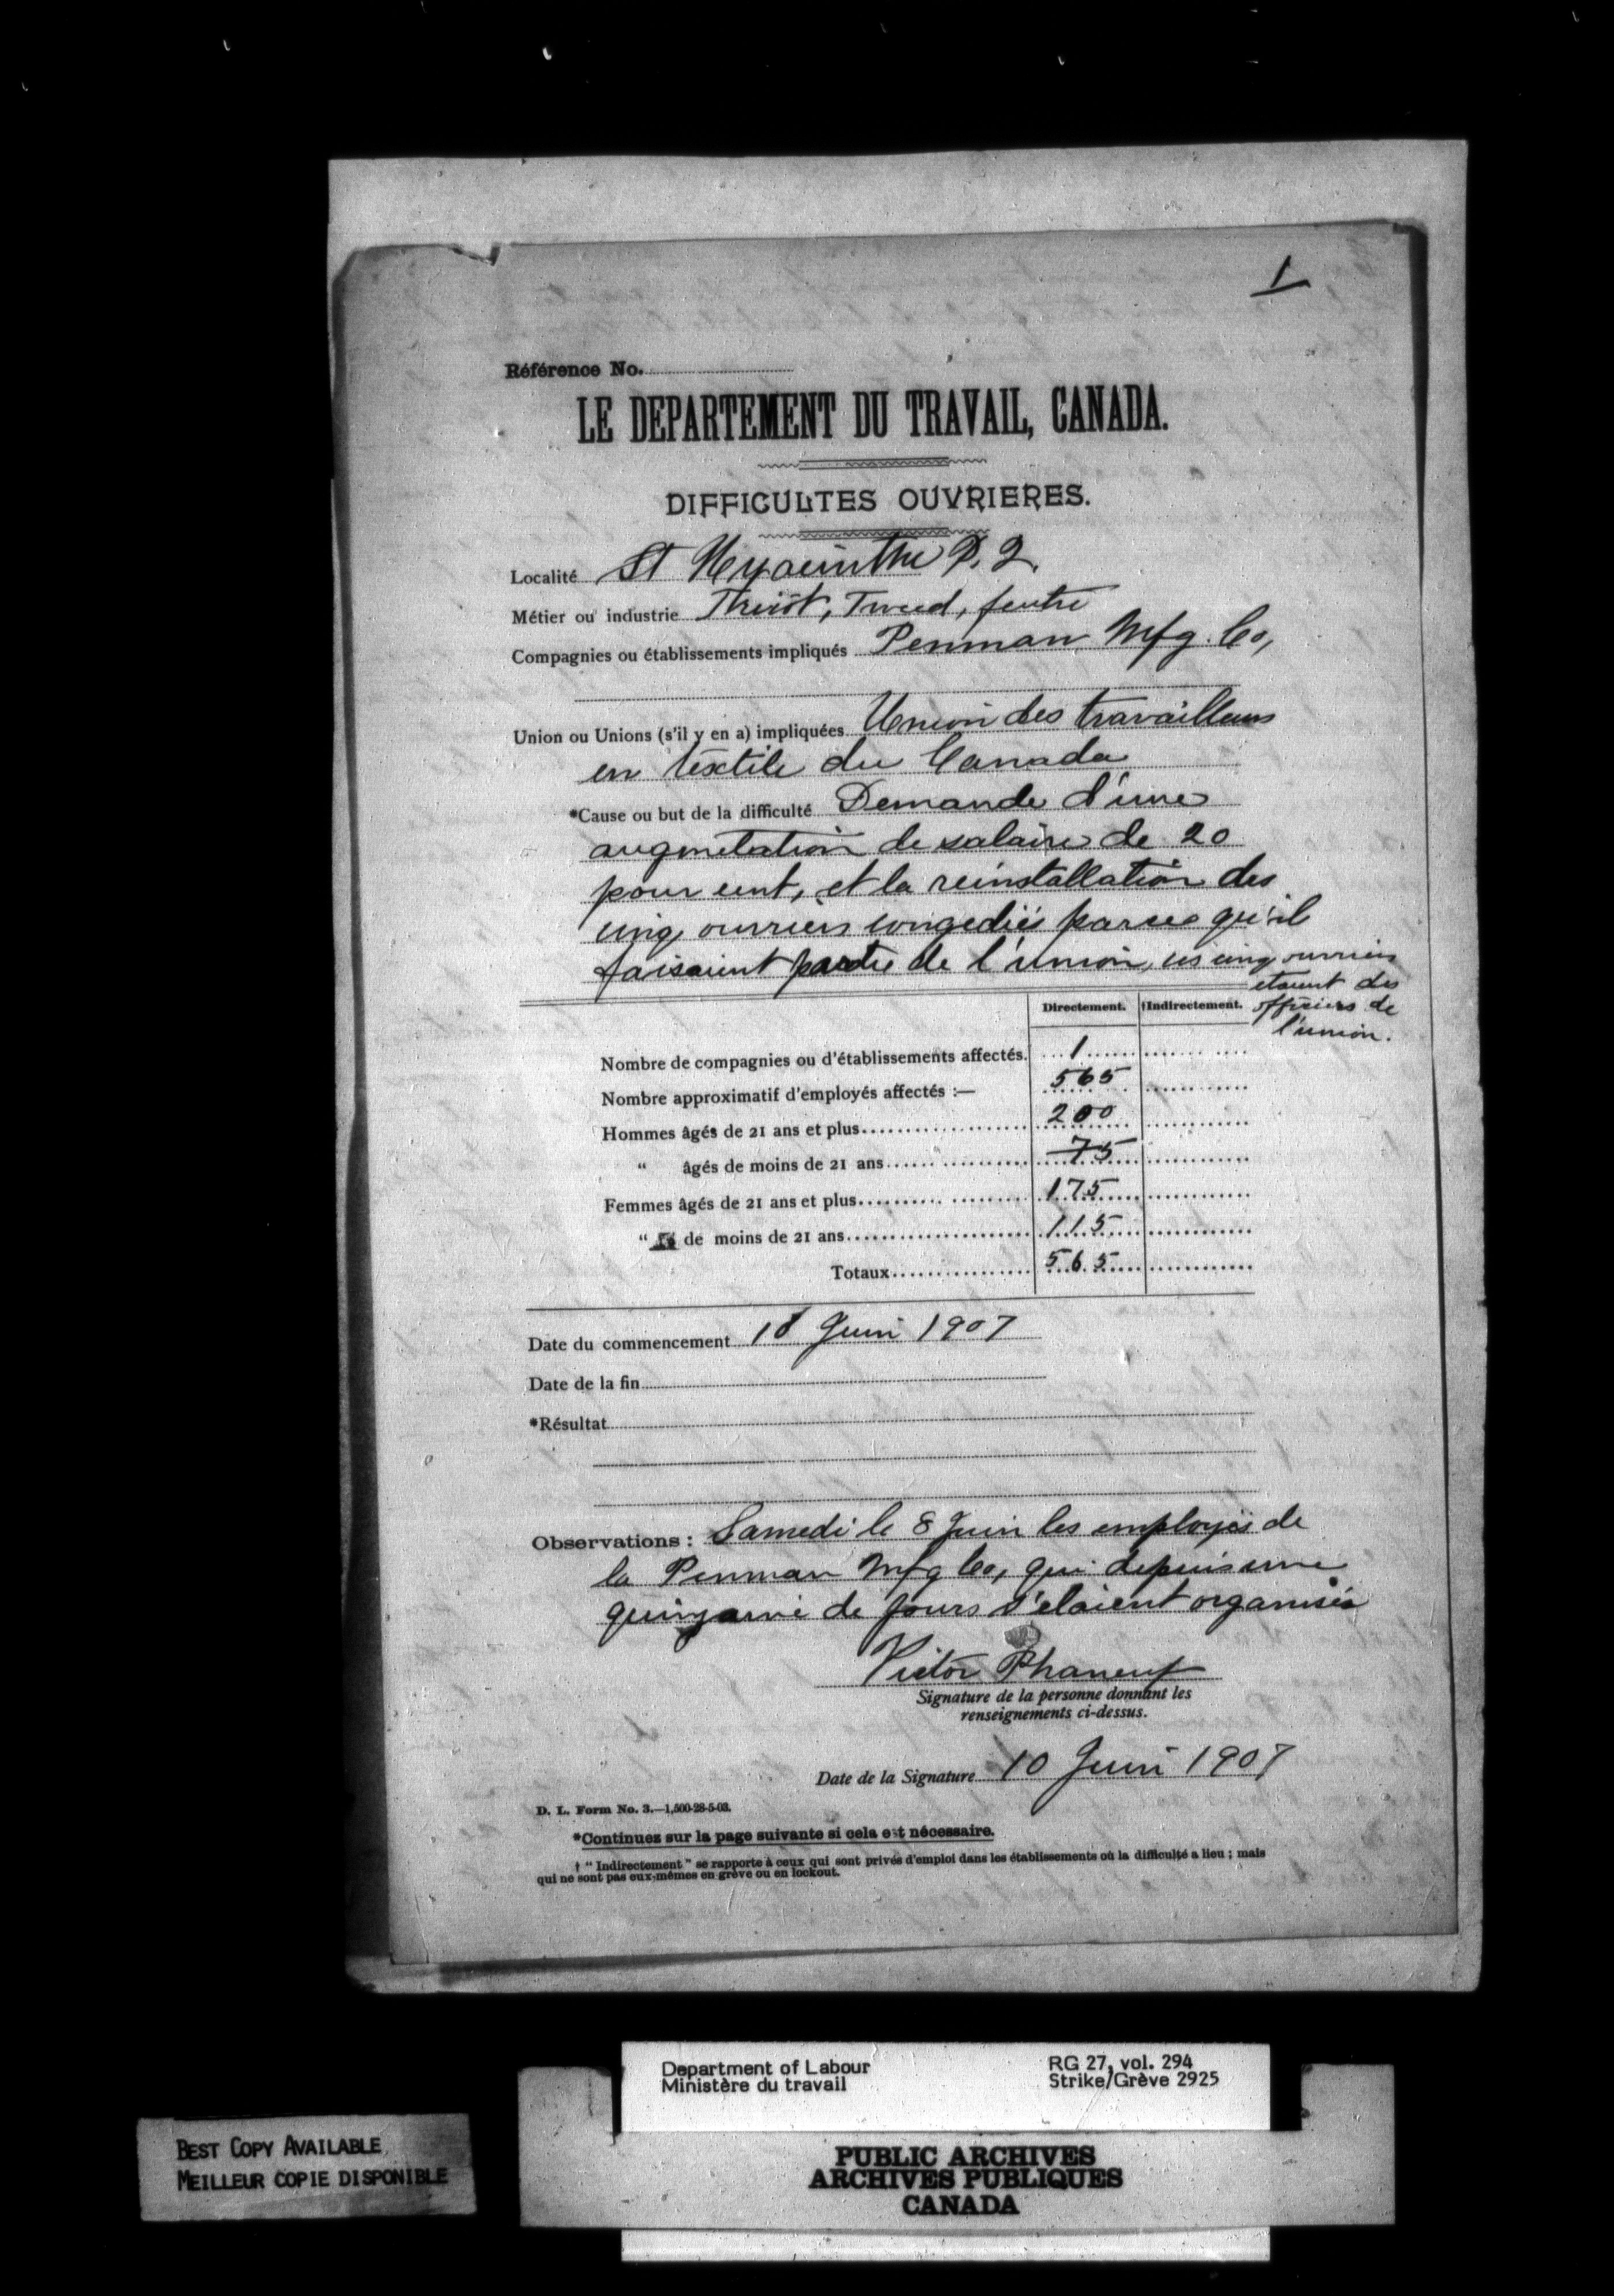 1
Référence No.
LE DEPARTEMENT DU TRAVAIL, CANADA.
DIFFICULTES OUVRIERES.
Localité St Hyacinthe P. Q.
Métier ou industrie Tricot, Tweed, feutre
Compagnies ou établissements impliqués Penman Mfg. Co,
Union ou Unions (s'il y en a) impliquées Union des travailleurs
en textile du Canada
*Cause ou but de la difficulté Demande d'une
augmetation de salaire de 20
pour cent, et la reinstallation des
cinq ouvriers congediés parce qu'il
faisaient partie de l'union, ces cinq ouvriers
etaient des
officiers de
l'union.
Directement. †Indirectement.
Nombre de compagnies ou d'établissements affectés. 1
Nombre approximatif d'employés affectés :— 565
Hommes âgés de 21 ans et plus 200
" âgés de moins de 21 ans 75
Femmes âgés de 21 ans et plus 175
" de moins de 21 ans 115
Totaux 565
Date du commencement Juin 1907
Date de la fin
*Résultat
Observations : Samedi le 8 Juin les employés de
la Penman Mfg Co, qui depuis une
quinzaine de jours s'etaient organisés
Victor Phaneuf
Signature de la personne donnant les
renseignements ci-dessus.
Date de la Signature 10 Juin 1907
D. L. Form No. 3.—1,500-28-5-03.
*Continuez sur la page suivante si cela est nécessaire.
† " Indirectement " se rapporte à ceux qui sont privés d'emploi dans les établissements où la difficulté a lieu ; mais
qui ne sont pas eux-mêmes en grève ou en lockout.
Department of Labour RG 27, vol. 294
Ministère du travail Strike/Grève 2925
BEST COPY AVAILABLE
MEILLEUR COPIE DISPONIBLE
PUBLIC ARCHIVES
ARCHIVES PUBLIQUES
CANADA